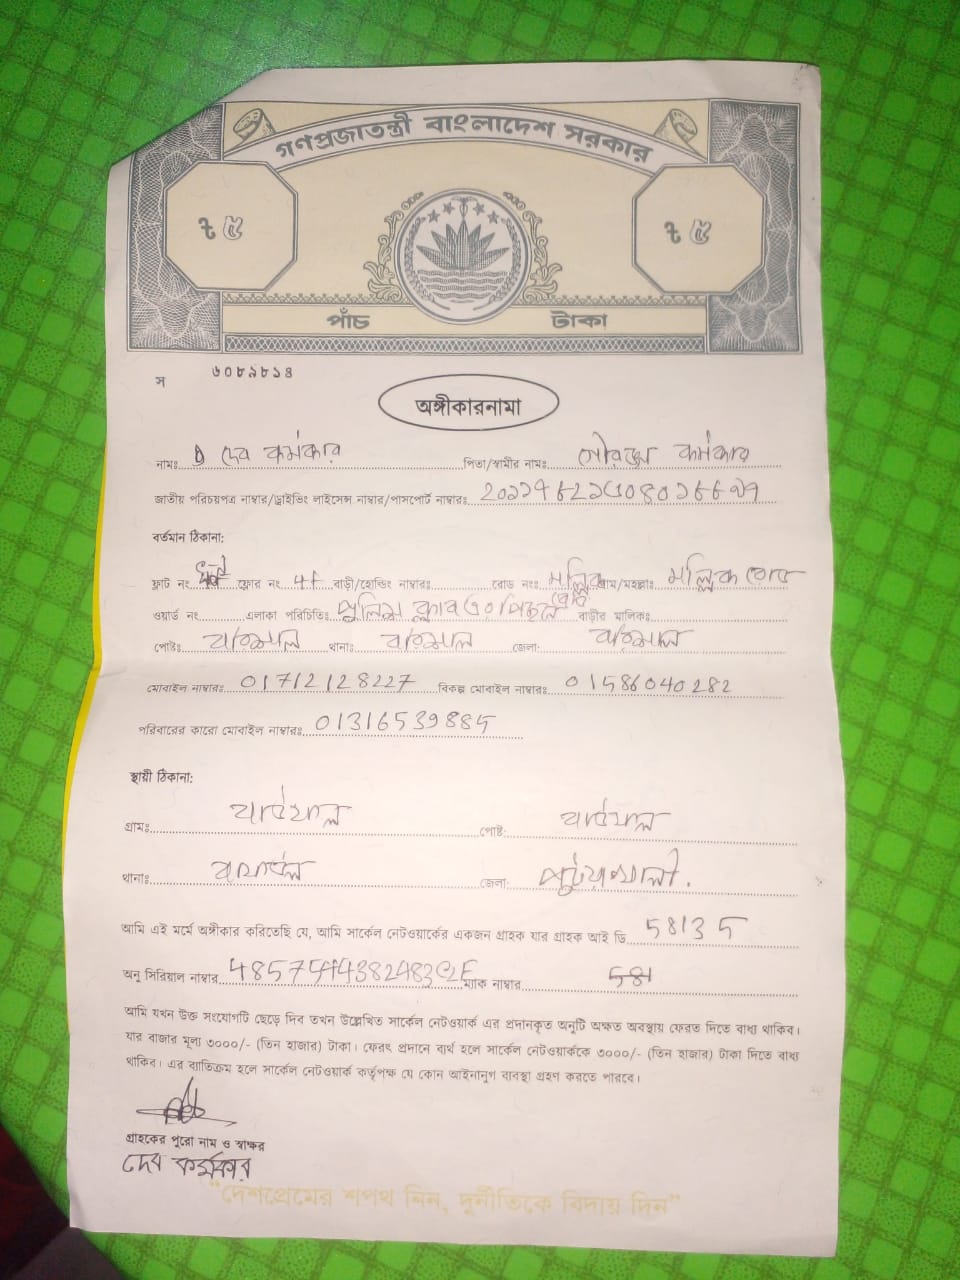 গণপ্রজাতন্ত্রী বাংলাদেশ সরকার
৳ ৫ ৳ ৫
পাঁচ টাকা
স ৬০৮৯৮১৪
অঙ্গীকারনামা
নামঃ দেব কর্মকার পিতা/স্বামীর নামঃ কর্মকার
জাতীয় পরিচয়পত্র নাম্বার/ড্রাইভিং লাইসেন্স নাম্বার/পাসপোর্ট নাম্বারঃ
বর্তমান ঠিকানা:
ফ্লাট নং ফ্লোর নং বাড়ী/হোল্ডিং নাম্বারঃ রোড নংঃ মল্লিক গ্রাম/মহল্লাঃ মল্লিক রোড
ওয়ার্ড নং এলাকা পরিচিতিঃ পুলিশ ক্লাব এর পিছনে বাড়ীর মালিকঃ
পোষ্টঃ বরিশাল থানাঃ বরিশাল জেলা: বরিশাল
মোবাইল নাম্বারঃ 01712128227 বিকল্প মোবাইল নাম্বারঃ 01586040282
পরিবারের কারো মোবাইল নাম্বারঃ 01316539885
স্থায়ী ঠিকানা:
গ্রামঃ পোষ্ট:
থানাঃ জেলা: পটুয়াখালী।
আমি এই মর্মে অঙ্গীকার করিতেছি যে, আমি সার্কেল নেটওয়ার্কের একজন গ্রাহক যার গ্রাহক আই ডি 58135
অনু সিরিয়াল নাম্বার ম্যাক নাম্বার
আমি যখন উক্ত সংযোগটি ছেড়ে দিব তখন উল্লেখিত সার্কেল নেটওয়ার্ক এর প্রদানকৃত অনুটি অক্ষত অবস্থায় ফেরত দিতে বাধ্য থাকিব।
যার বাজার মূল্য ৩০০০/- (তিন হাজার) টাকা। ফেরৎ প্রদানে ব্যর্থ হলে সার্কেল নেটওয়ার্ককে ৩০০০/- (তিন হাজার) টাকা দিতে বাধ্য
থাকিব। এর ব্যতিক্রম হলে সার্কেল নেটওয়ার্ক কর্তৃপক্ষ যে কোন আইনানুগ ব্যবস্থা গ্রহণ করতে পারবে।
গ্রাহকের পুরো নাম ও স্বাক্ষর
দেব কর্মকার
"দেশপ্রেমের শপথ নিন, দুর্নীতিকে বিদায় দিন"